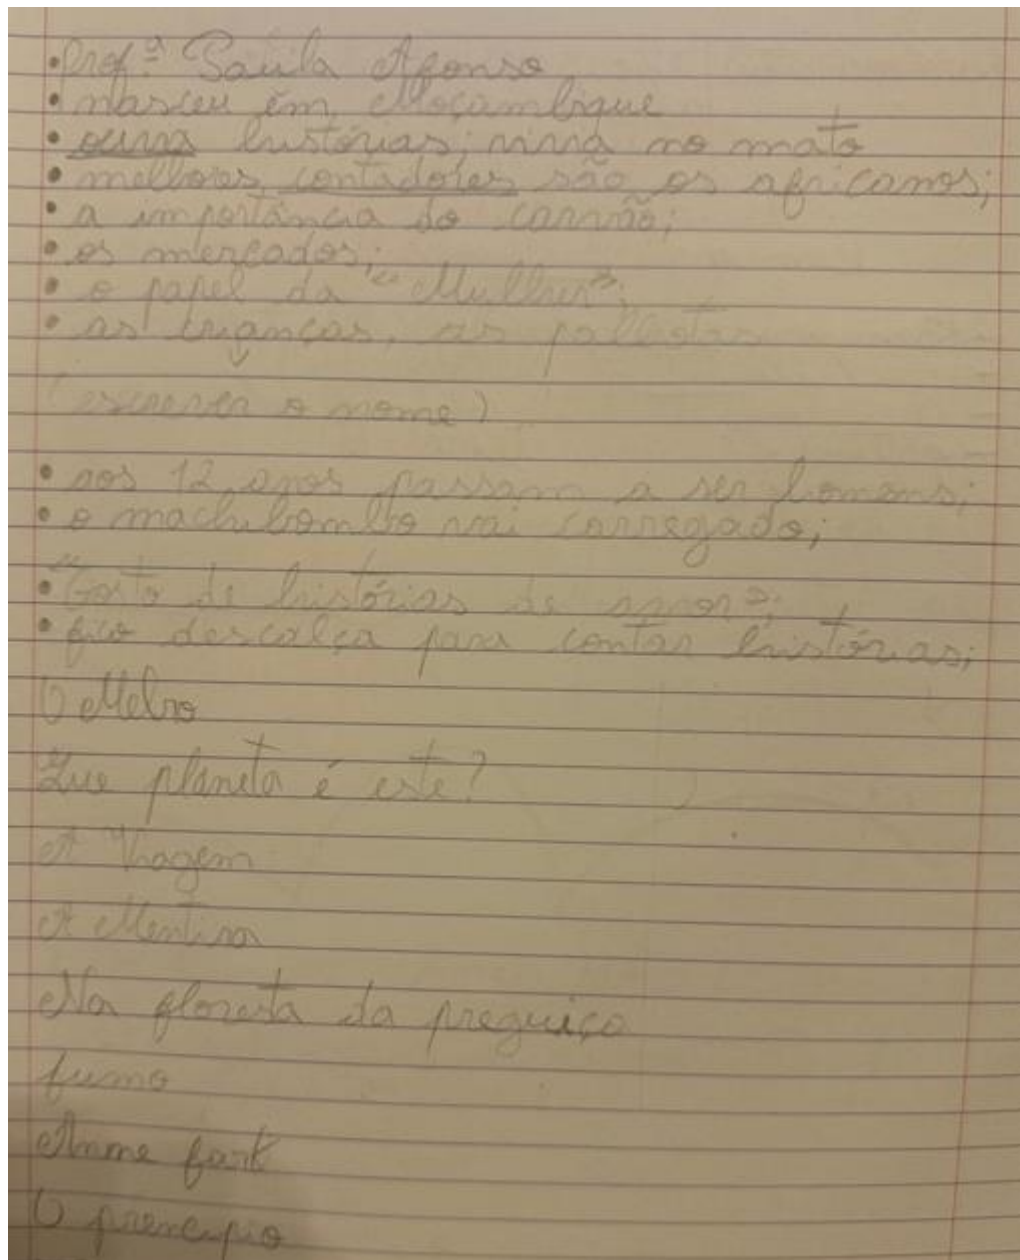 • Prof.ª Paula Afonso
• nasceu em Moçambique
• ouvia histórias; vivia no mato
• melhores contadores são os africanos;
• a importância do carvão;
• os mercados;
• o papel da "Mulher";
• as crianças, as palhotas
(escrever o nome)
• aos 12 anos passam a ser homens;
• o machibombo vai carregado;
• "Gosto de histórias de amor";
• fico descalça para contar histórias;
O Melro
Que planeta é este?
A Viagem
A Mentira
Na floresta da preguiça
fumo
Anne
O prencipio